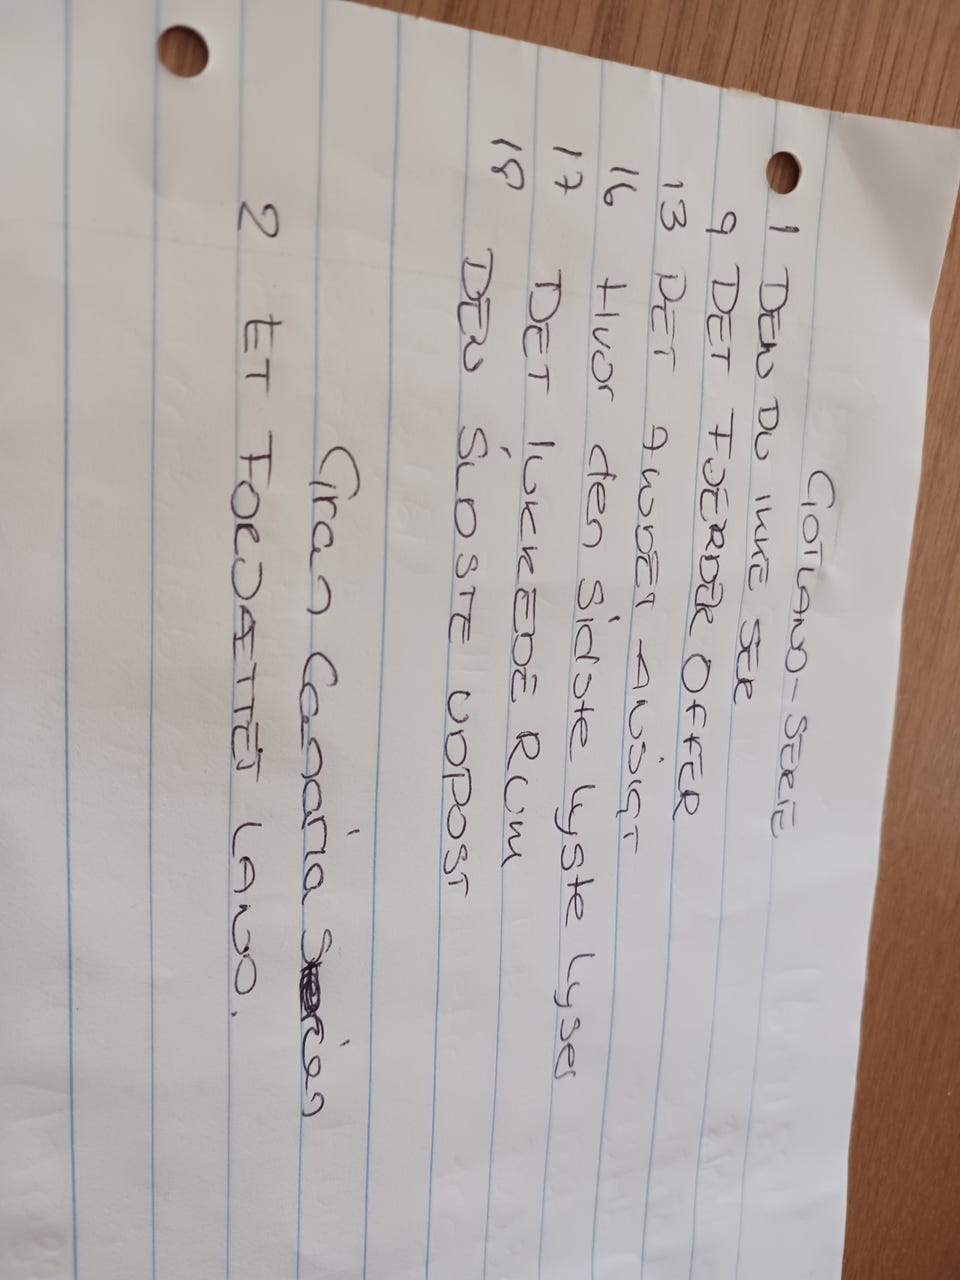 GOTLAND-SERIE
1 DEN DU IKKE SER
9 DET FJERDER OFFER
13 DET ANDET ANSIGT
16 Hvor den sidste lyste lyser
17 DET lukkede RUM
18 DEN SIDSTE UDPOST
Gran Canaria Serien
2 ET FORDÆTTET LAND.